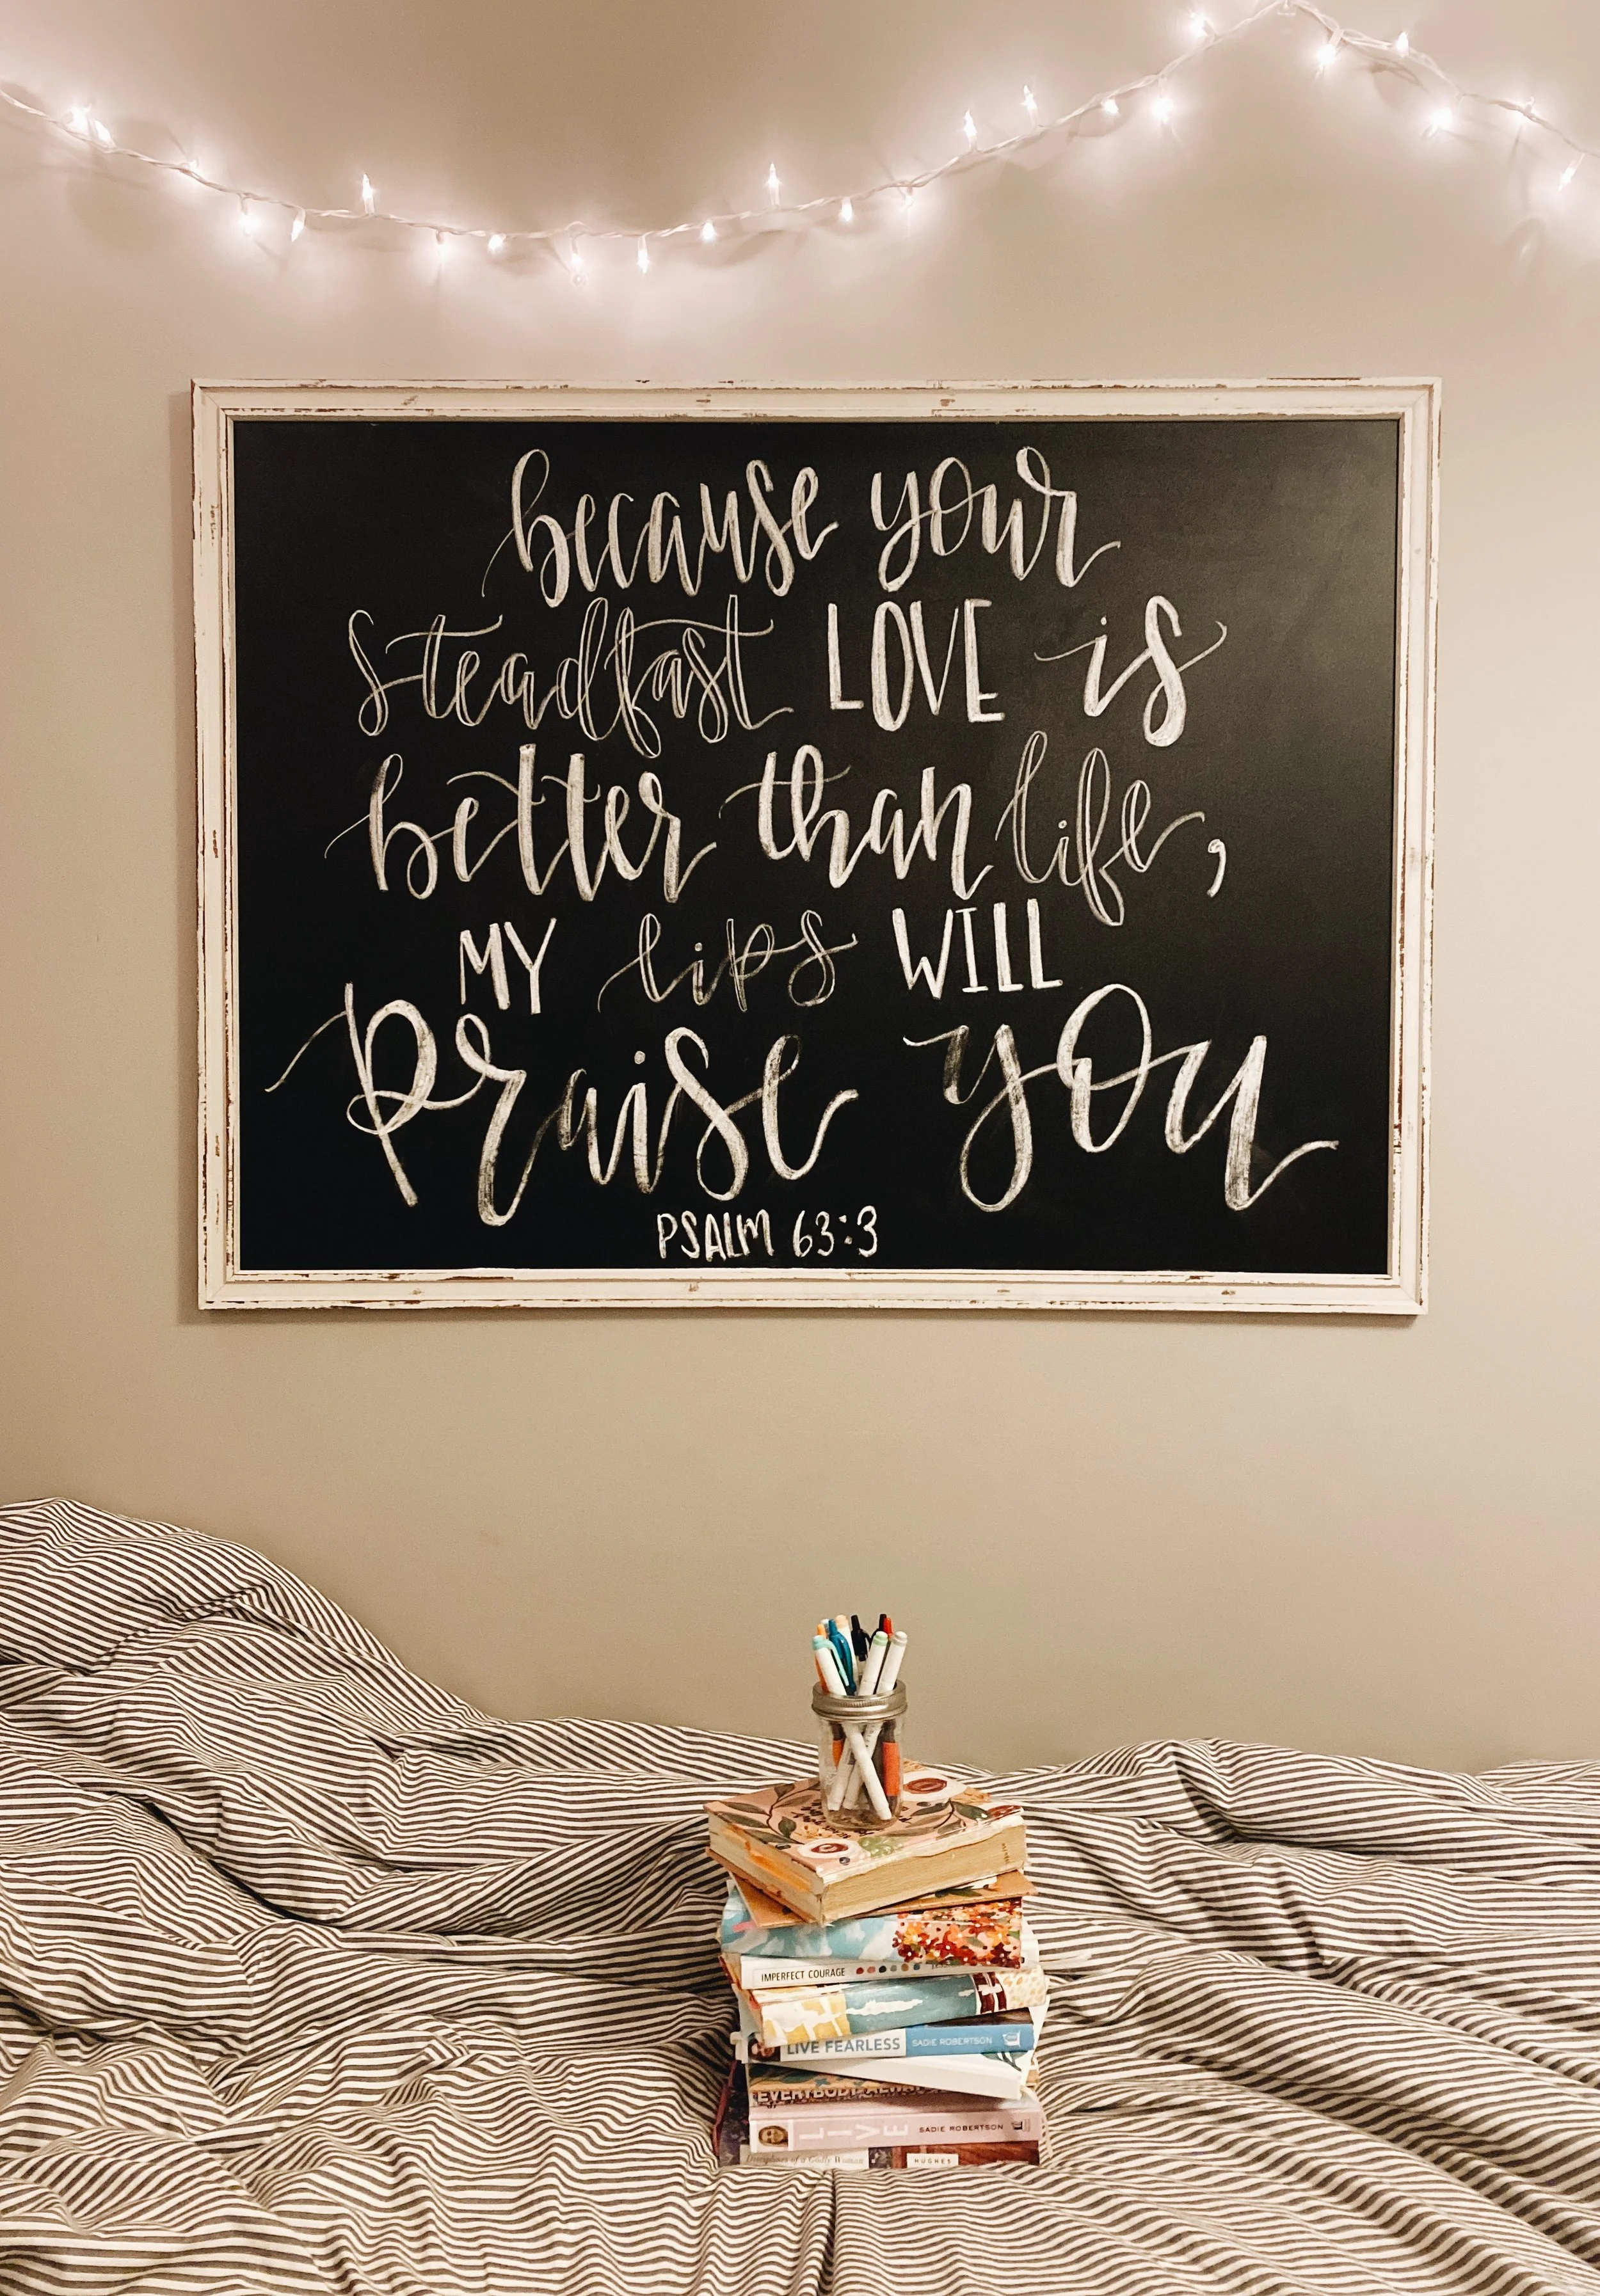 because your
steadfast LOVE is
better than life,
MY lips WILL
Praise you
PSALM 63:3
IMPERFECT COURAGE
LIVE FEARLESS SADIE ROBERTSON
LIVE SADIE ROBERTSON
Disciplines of a Godly Woman HUGHES